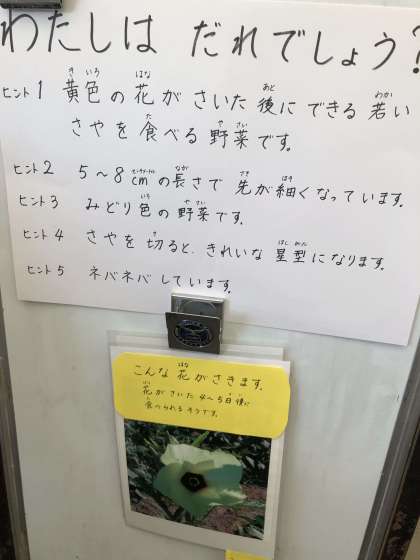 わたしは だれでしょう?
ヒント1 黄色の花がさいた後にできる若い
さやを食べる野菜です。
ヒント2 5～8cmの長さで先が細くなっています。
ヒント3 みどり色の野菜です。
ヒント4 さやを切ると、きれいな星型になります。
ヒント5 ネバネバしています。
こんな花がさきます。
花がさいた4～5日後に
食べられるそうです。